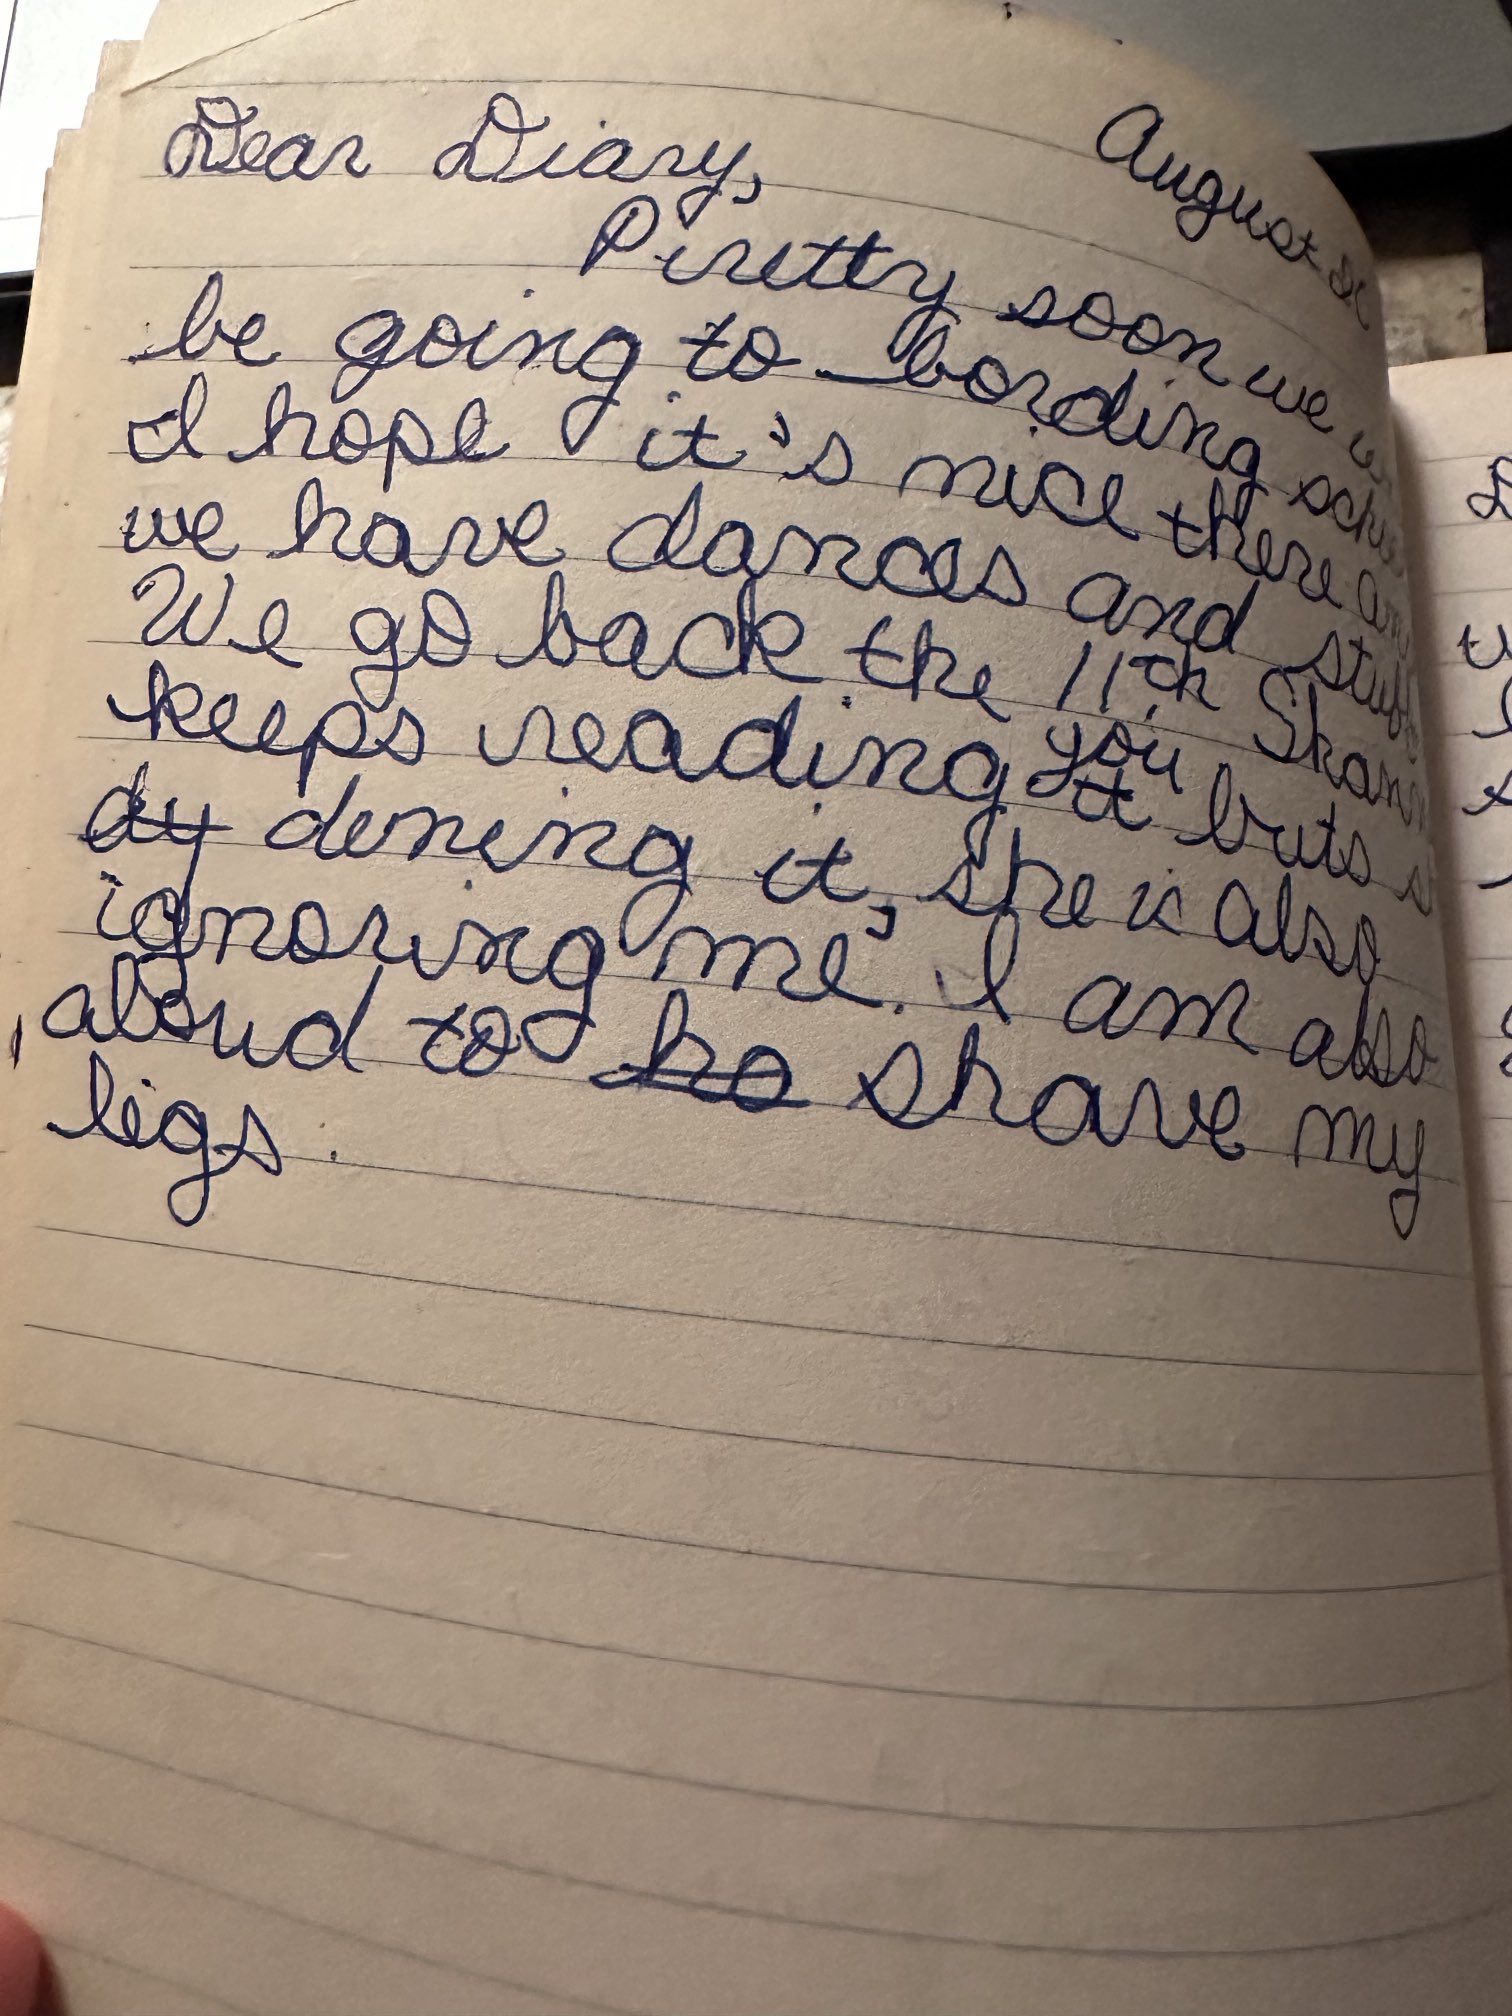 Dear Diary,
August
Pretty soon we
be going to bording
I hope it's nice there
we have dances and
We go back the 11th
keeps reading you it buts
dy dening it, she is also
ignoring me. I am also
aboud to ho shave my
ligs.